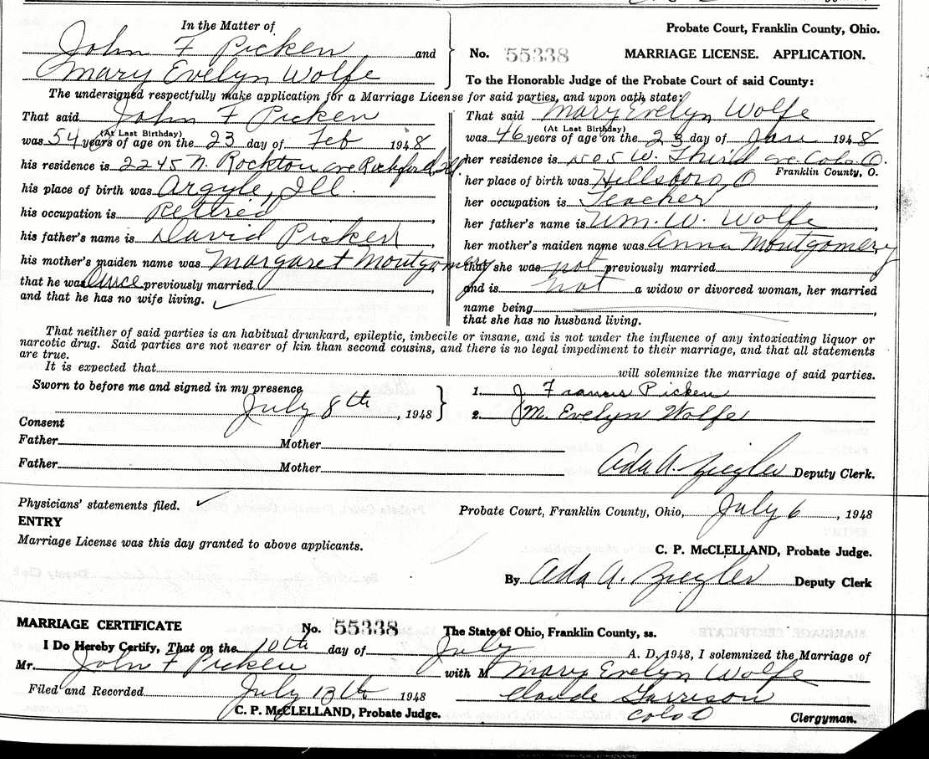 In the Matter of
John F Picken and
Mary Evelyn Wolfe
Probate Court, Franklin County, Ohio.
No. 55338 MARRIAGE LICENSE. APPLICATION.
To the Honorable Judge of the Probate Court of said County:
The undersigned respectfully make application for a Marriage License for said parties, and upon oath state:
That said John F Picken
(At Last Birthday)
was 54 years of age on the 23 day of Feb 1948
his residence is 2245 N. Rockton ave Rockford, Ill.
his place of birth was Argyle, Ill.
his occupation is Retired
his father's name is David Picken
his mother's maiden name was Margaret Montgomery
that he was Once previously married
and that he has no wife living. ✓
That said Mary Evelyn Wolfe
(At Last Birthday)
was 46 years of age on the 23 day of Jan 1948
her residence is W. Third ave Cols. O.
Franklin County, O.
her place of birth was Hillsboro, O
her occupation is Teacher
her father's name is Wm. W. Wolfe
her mother's maiden name was Anna Montgomery
that she was not previously married
and is not a widow or divorced woman, her married
name being
that she has no husband living.
That neither of said parties is an habitual drunkard, epileptic, imbecile or insane, and is not under the influence of any intoxicating liquor or
narcotic drug. Said parties are not nearer of kin than second cousins, and there is no legal impediment to their marriage, and that all statements
are true.
It is expected that will solemnize the marriage of said parties.
Sworn to before me and signed in my presence
July 8th, 1948
1. J. Francis Picken
2. M. Evelyn Wolfe
Consent
Father Mother
Father Mother
Ada A. Ziegler Deputy Clerk.
Physicians' statements filed. ✓
Probate Court, Franklin County, Ohio, July 6, 1948
ENTRY
Marriage License was this day granted to above applicants.
C. P. McCLELLAND, Probate Judge.
By Ada A. Ziegler Deputy Clerk
MARRIAGE CERTIFICATE No. 55338 The State of Ohio, Franklin County, ss.
I Do Hereby Certify, That on the 10th day of July A. D. 1948, I solemnized the Marriage of
Mr. John F Picken with M Mary Evelyn Wolfe
Filed and Recorded July 13th 1948
Claude Garrison
C. P. McCLELLAND, Probate Judge.
Cols O Clergyman.